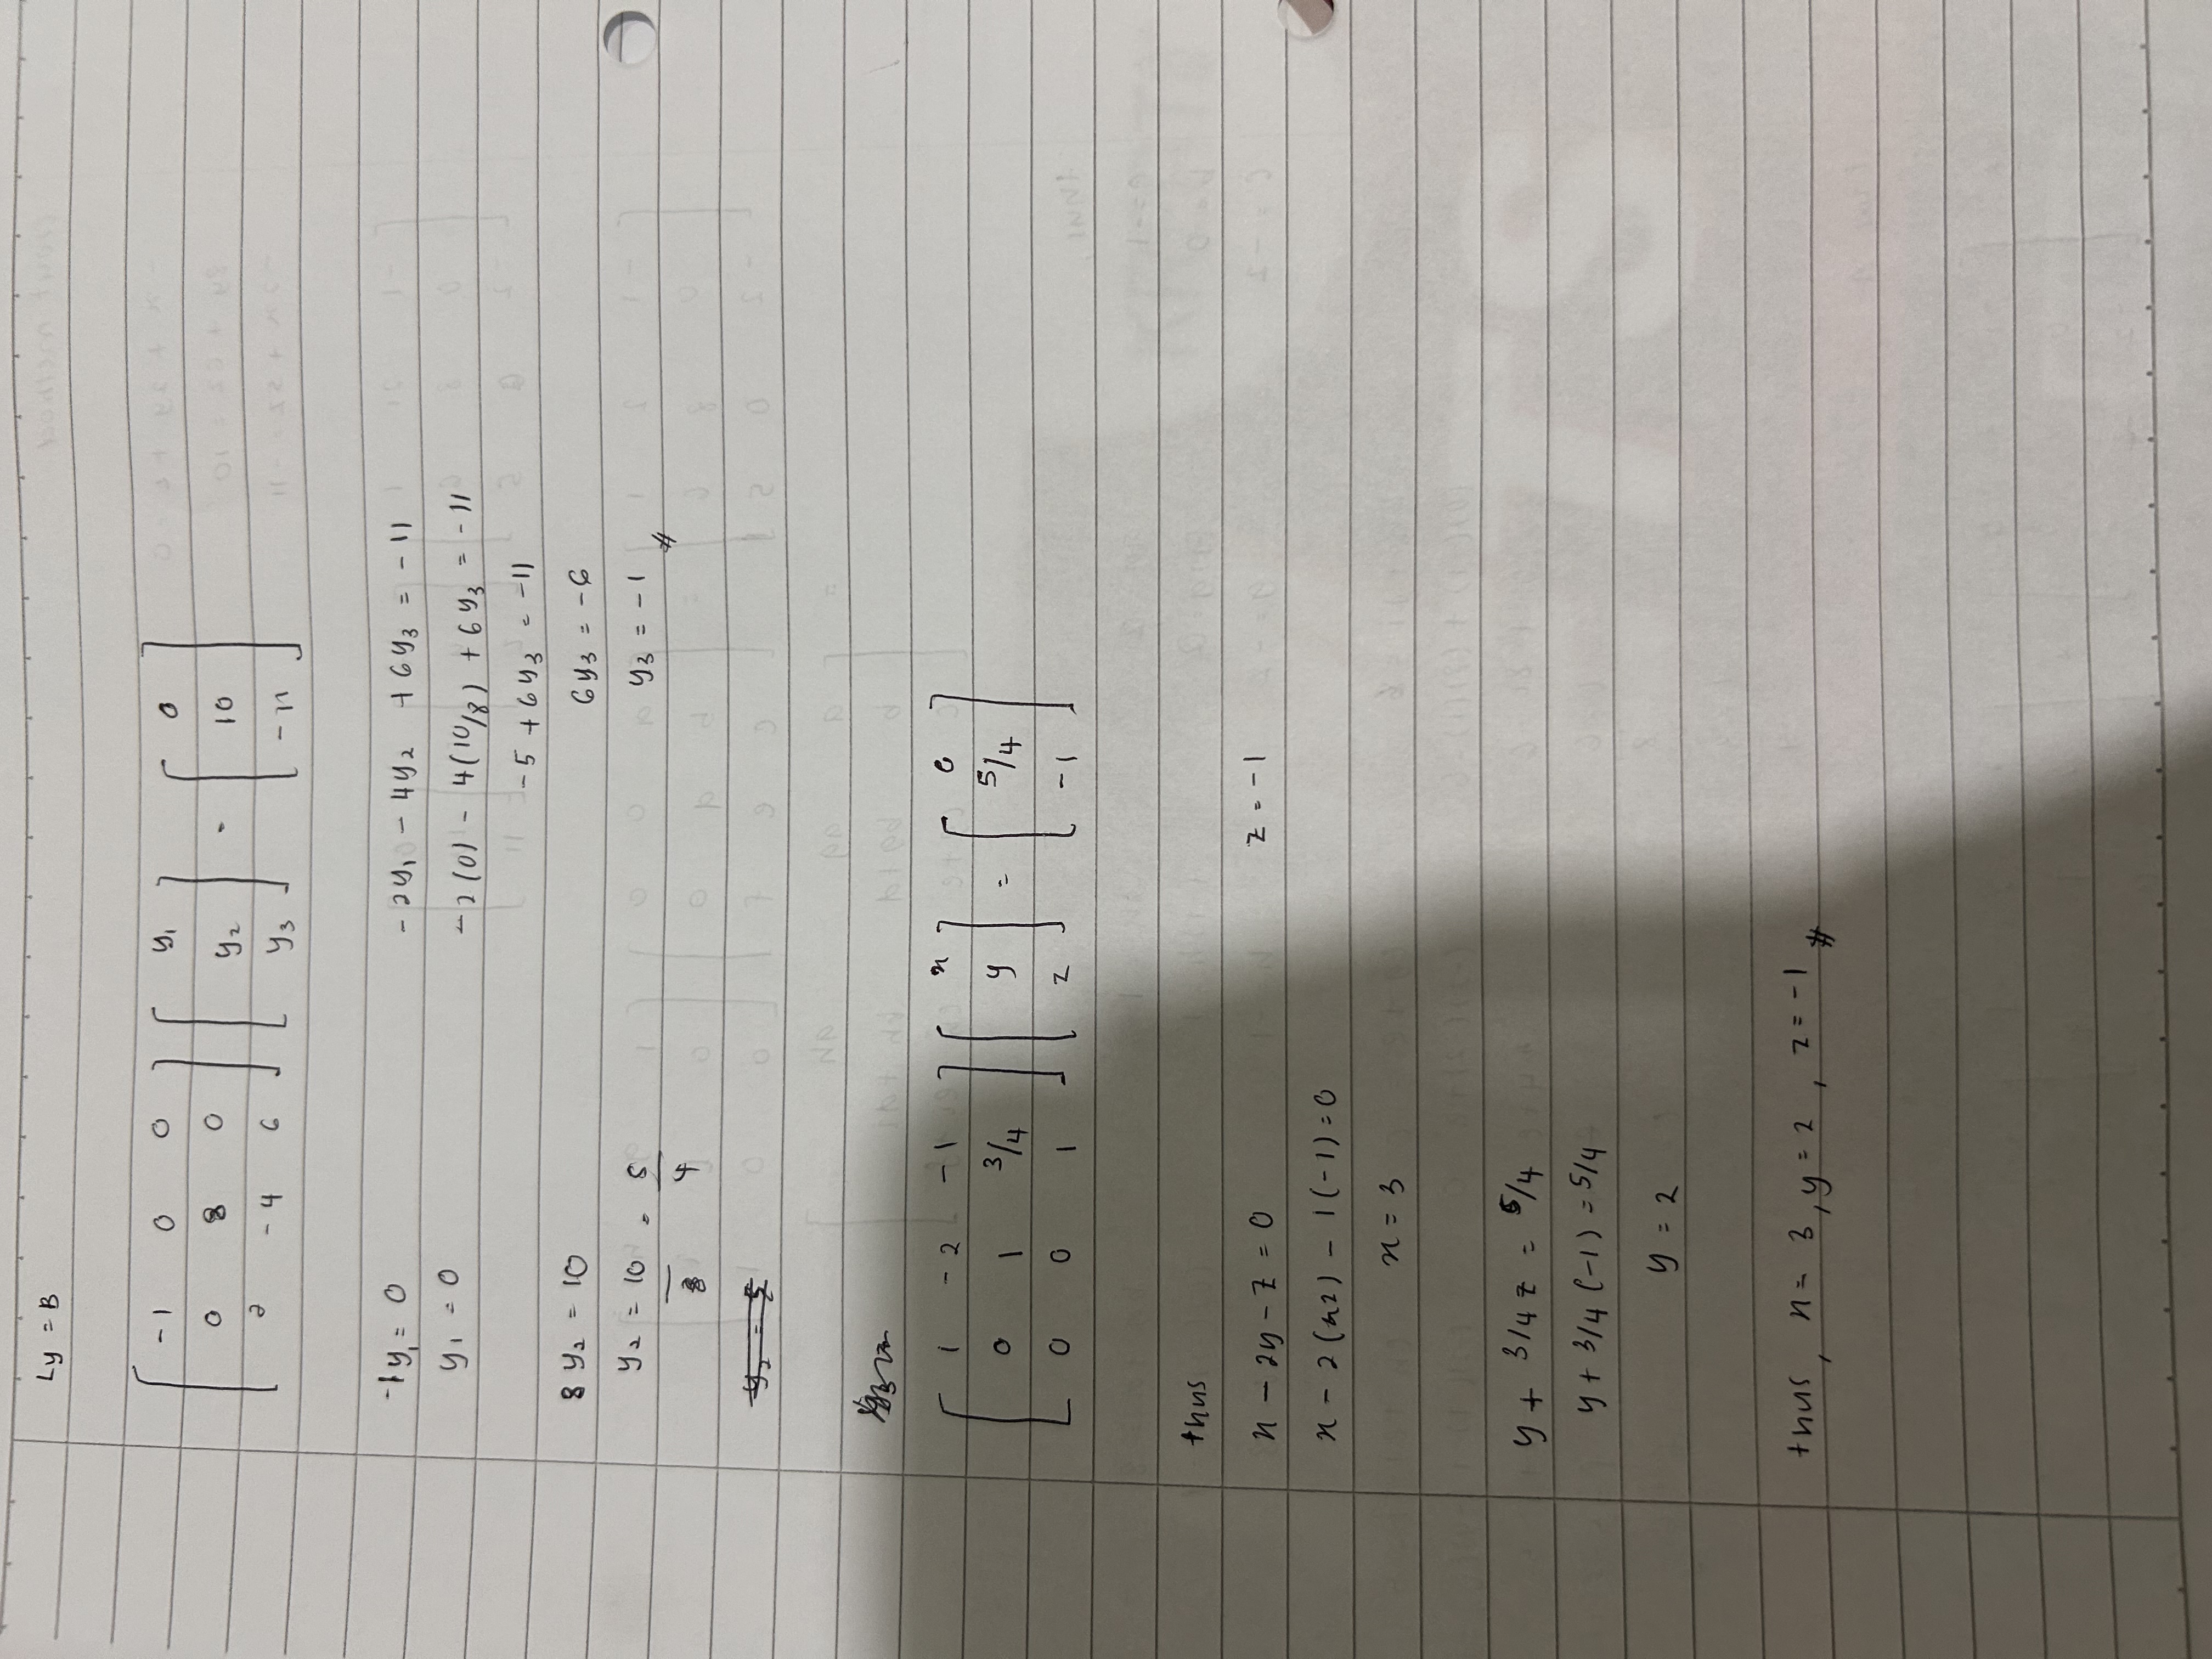 Ly = B
[ -1 0 0 ] [ y₁ ] = [ 0 ]
[ 0 8 0 ] [ y₂ ] [ 10 ]
[ 2 -4 6 ] [ y₃ ] [ -11 ]
-1y₁ = 0
y₁ = 0
8y₂ = 10
y₂ = 10/8 = 5/4
-2y₁ - 4y₂ + 6y₃ = -11
-2(0) - 4(10/8) + 6y₃ = -11
-5 + 6y₃ = -11
6y₃ = -6
y₃ = -1 #
[ 1 -2 -1 ] [ x ] = [ 0 ]
[ 0 1 3/4 ] [ y ] [ 5/4 ]
[ 0 0 1 ] [ z ] [ -1 ]
thus
x - 2y - z = 0
x - 2(2) - 1(-1) = 0
x = 3
z = -1
y + 3/4 z = 5/4
y + 3/4 (-1) = 5/4
y = 2
thus, x = 3, y = 2, z = -1 #